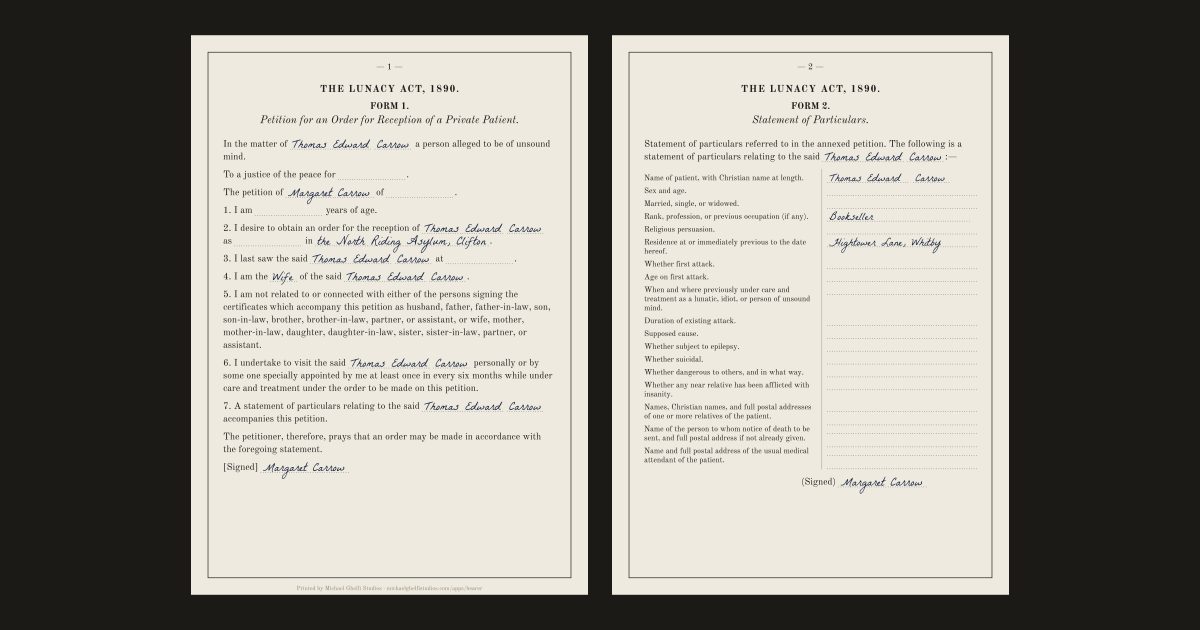 — 1 —
THE LUNACY ACT, 1890.
FORM 1.
Petition for an Order for Reception of a Private Patient.
In the matter of Thomas Edward Carrow a person alleged to be of unsound
mind.
To a justice of the peace for .
The petition of Margaret Carrow of .
1. I am years of age.
2. I desire to obtain an order for the reception of Thomas Edward Carrow
as in the North Riding Asylum, Clifton .
3. I last saw the said Thomas Edward Carrow at .
4. I am the Wife of the said Thomas Edward Carrow .
5. I am not related to or connected with either of the persons signing the
certificates which accompany this petition as husband, father, father-in-law, son,
son-in-law, brother, brother-in-law, partner, or assistant, or wife, mother,
mother-in-law, daughter, daughter-in-law, sister, sister-in-law, partner, or
assistant.
6. I undertake to visit the said Thomas Edward Carrow personally or by
some one specially appointed by me at least once in every six months while under
care and treatment under the order to be made on this petition.
7. A statement of particulars relating to the said Thomas Edward Carrow
accompanies this petition.
The petitioner, therefore, prays that an order may be made in accordance with
the foregoing statement.
[Signed] Margaret Carrow
Printed by Michael Ghelfi Studios · michaelghelfistudios.com/apps/bearer
— 2 —
THE LUNACY ACT, 1890.
FORM 2.
Statement of Particulars.
Statement of particulars referred to in the annexed petition. The following is a
statement of particulars relating to the said Thomas Edward Carrow :—
Name of patient, with Christian name at length. Thomas Edward Carrow
Sex and age.
Married, single, or widowed.
Rank, profession, or previous occupation (if any). Bookseller
Religious persuasion.
Residence at or immediately previous to the date Hightower Lane, Whitby
hereof.
Whether first attack.
Age on first attack.
When and where previously under care and
treatment as a lunatic, idiot, or person of unsound
mind.
Duration of existing attack.
Supposed cause.
Whether subject to epilepsy.
Whether suicidal.
Whether dangerous to others, and in what way.
Whether any near relative has been afflicted with
insanity.
Names, Christian names, and full postal addresses
of one or more relatives of the patient.
Name of the person to whom notice of death to be
sent, and full postal address if not already given.
Name and full postal address of the usual medical
attendant of the patient.
(Signed) Margaret Carrow